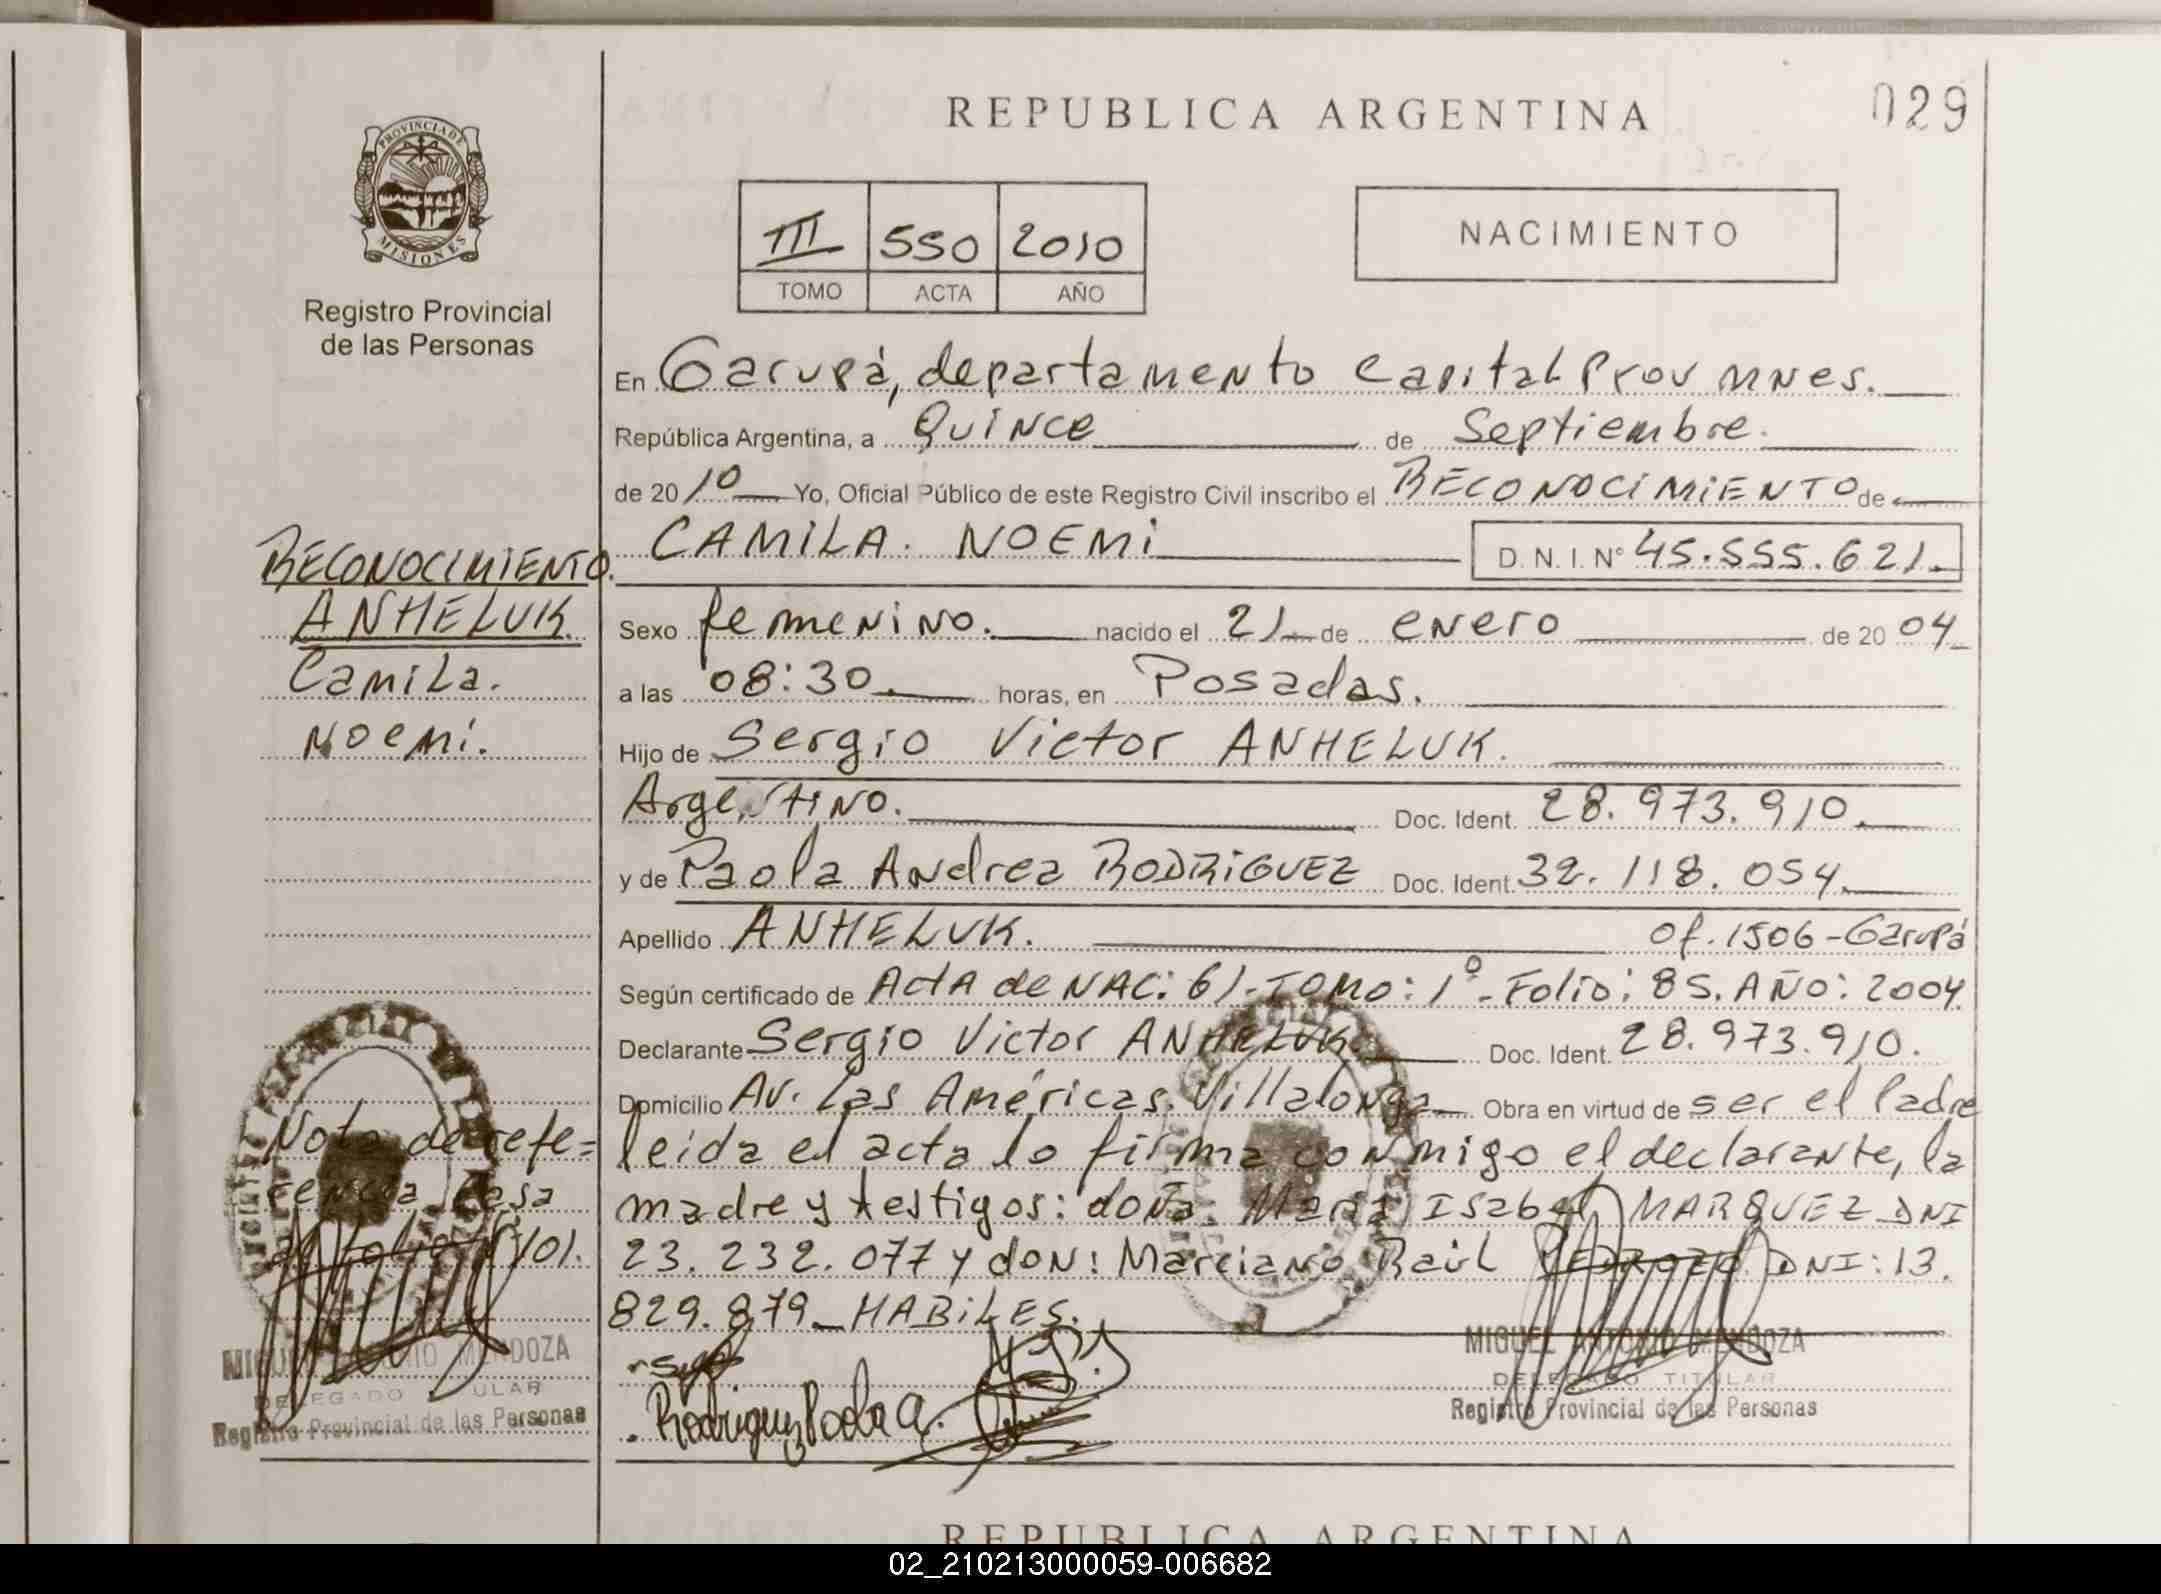 REPUBLICA ARGENTINA
029
PROVINCIA DE
MISIONES
Registro Provincial
de las Personas
III 550 2010
TOMO ACTA AÑO
NACIMIENTO
En Garupá, departamento Capital Prov Mnes.
República Argentina, a Quince de Septiembre.
de 2010 Yo, Oficial Público de este Registro Civil inscribo el RECONOCIMIENTO de
CAMILA. NOEMi D. N. I. N° 45.555.621.
Sexo femenino. nacido el 21 de enero de 2004
a las 08:30. horas, en Posadas.
Hijo de Sergio Victor ANHELUK.
Argentino. Doc. Ident. 28.973.910.
y de Paola Andrea RODRiGUEZ Doc. Ident. 32.118.054.
Apellido ANHELUK. of. 1506-Garupá
Según certificado de Acta de NAC: 61-TOMO: 1º-Folio: 85. AÑO: 2004.
Declarante Sergio Victor ANHELUK. Doc. Ident. 28.973.910.
Domicilio Av. Las Américas. Villalonga Obra en virtud de ser el Padre
leida el acta lo firma conmigo el declarante, la
madre y testigos: doña. Maria Isabel MARQUEZ DNI
23.232.077 y don: Marciano Raúl PEDROZO DNI: 13.
829.879_HABiLES.
Rodriguez Paola A.
MIGUEL ANTONIO MENDOZA
DELEGADO TITULAR
Registro Provincial de las Personas
RECONOCIMIENTO.
ANHELUK.
Camila.
Noemi.
Nota de refe=
rencia pasa
al folio 101.
MIGUEL ANTONIO MENDOZA
DELEGADO TITULAR
Registro Provincial de las Personas
REPUBLICA ARGENTINA
02_210213000059-006682